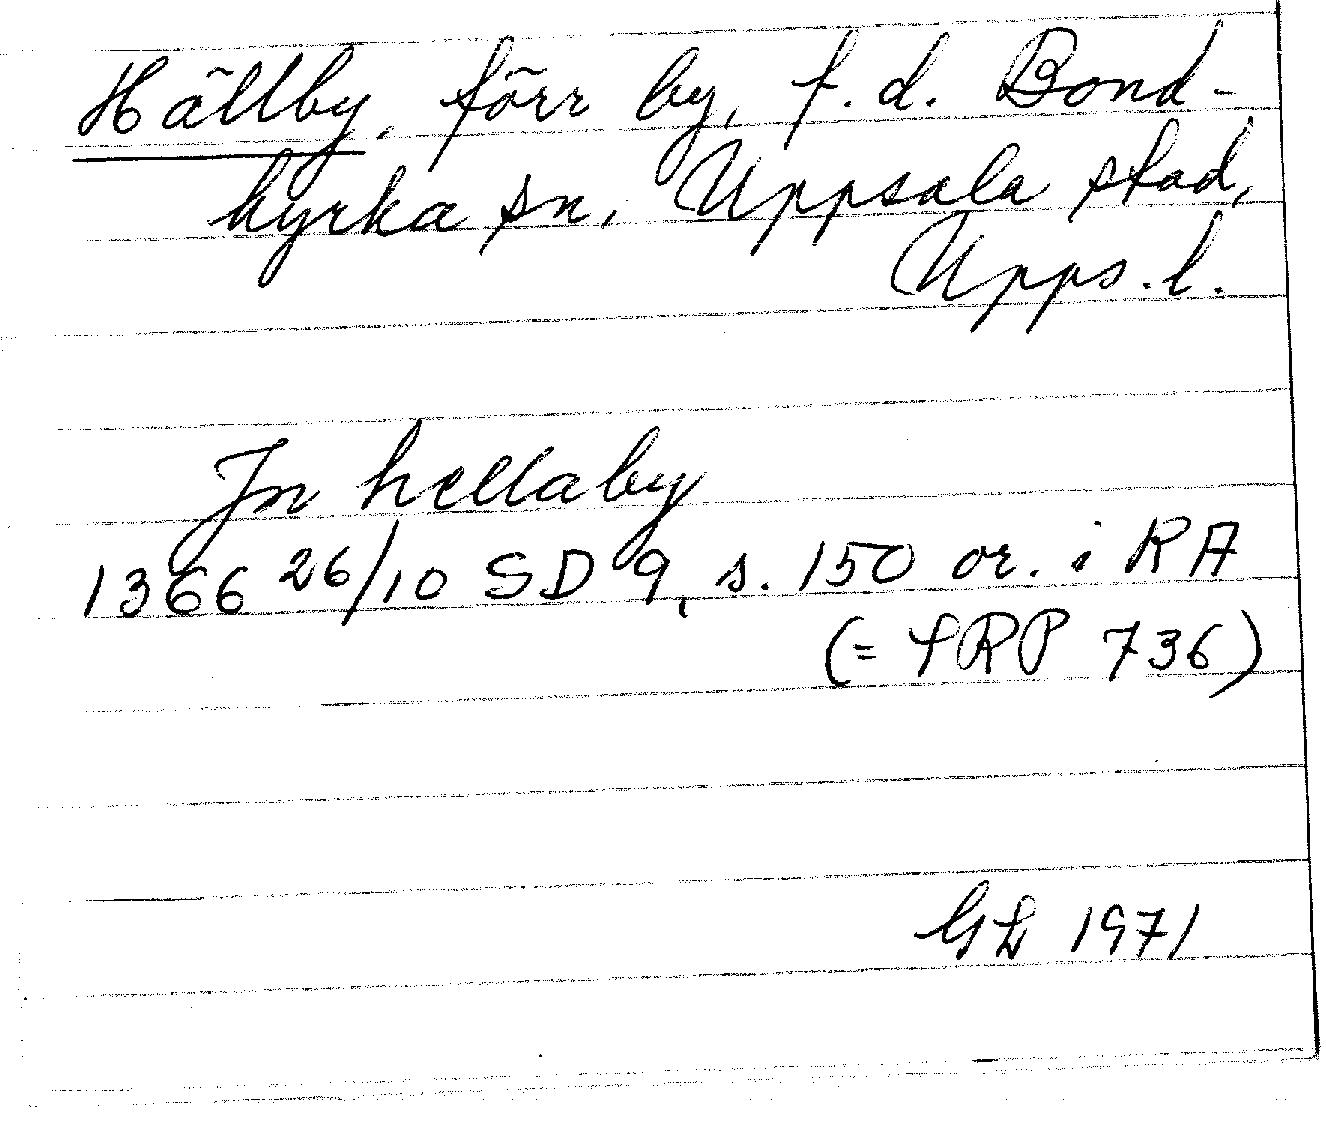 Hällby, förr by, f.d. Bond-
kyrka sn, Uppsala stad,
Upps.l.
Jn hellaby
1366 26/10 SD 9, s. 150 or. i RA
(= SRP 736)
GL 1971